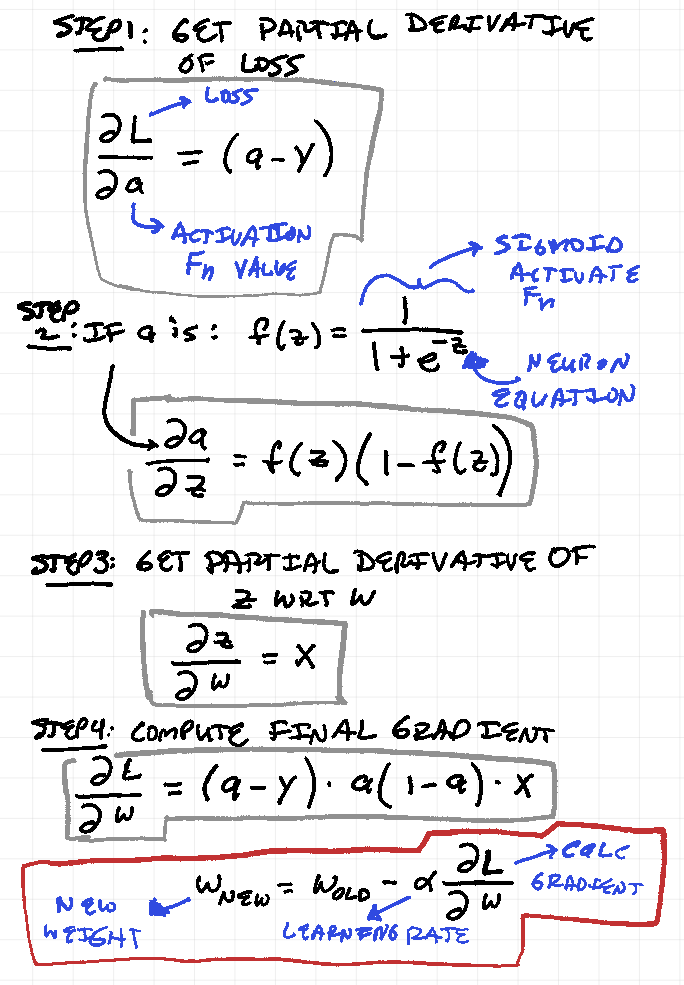 STEP1: GET PARTIAL DERIVATIVE
OF LOSS
LOSS
∂L/∂a = (a-y)
ACTIVATION
Fn VALUE
SIGMOID
ACTIVATE
Fn
STEP
2: IF a is: f(z) = 1/(1+e^-z)
NEURON
EQUATION
∂a/∂z = f(z)(1-f(z))
STEP3: GET PARTIAL DERIVATIVE OF
Z WRT W
∂z/∂w = X
STEP4: COMPUTE FINAL GRADIENT
∂L/∂w = (a-y)·a(1-a)·X
W_NEW = W_OLD - α ∂L/∂w
CALC
GRADIENT
NEW
WEIGHT
LEARNING RATE